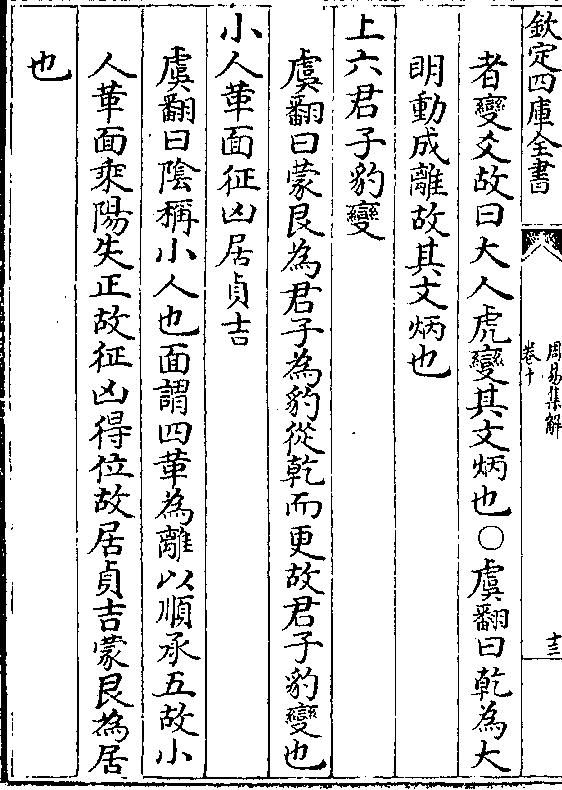 欽定四庫全書
周易集解
卷十
十三
者變爻故曰大人虎變其文炳也○虞翻曰乾為大
明動成離故其文炳也
上六君子豹變
虞翻曰蒙艮為君子為豹從乾而更故君子豹變也
小人革面征凶居貞吉
虞翻曰陰稱小人也面謂四革為離以順承五故小
人革面乘陽失正故征凶得位故居貞吉蒙艮為居
也